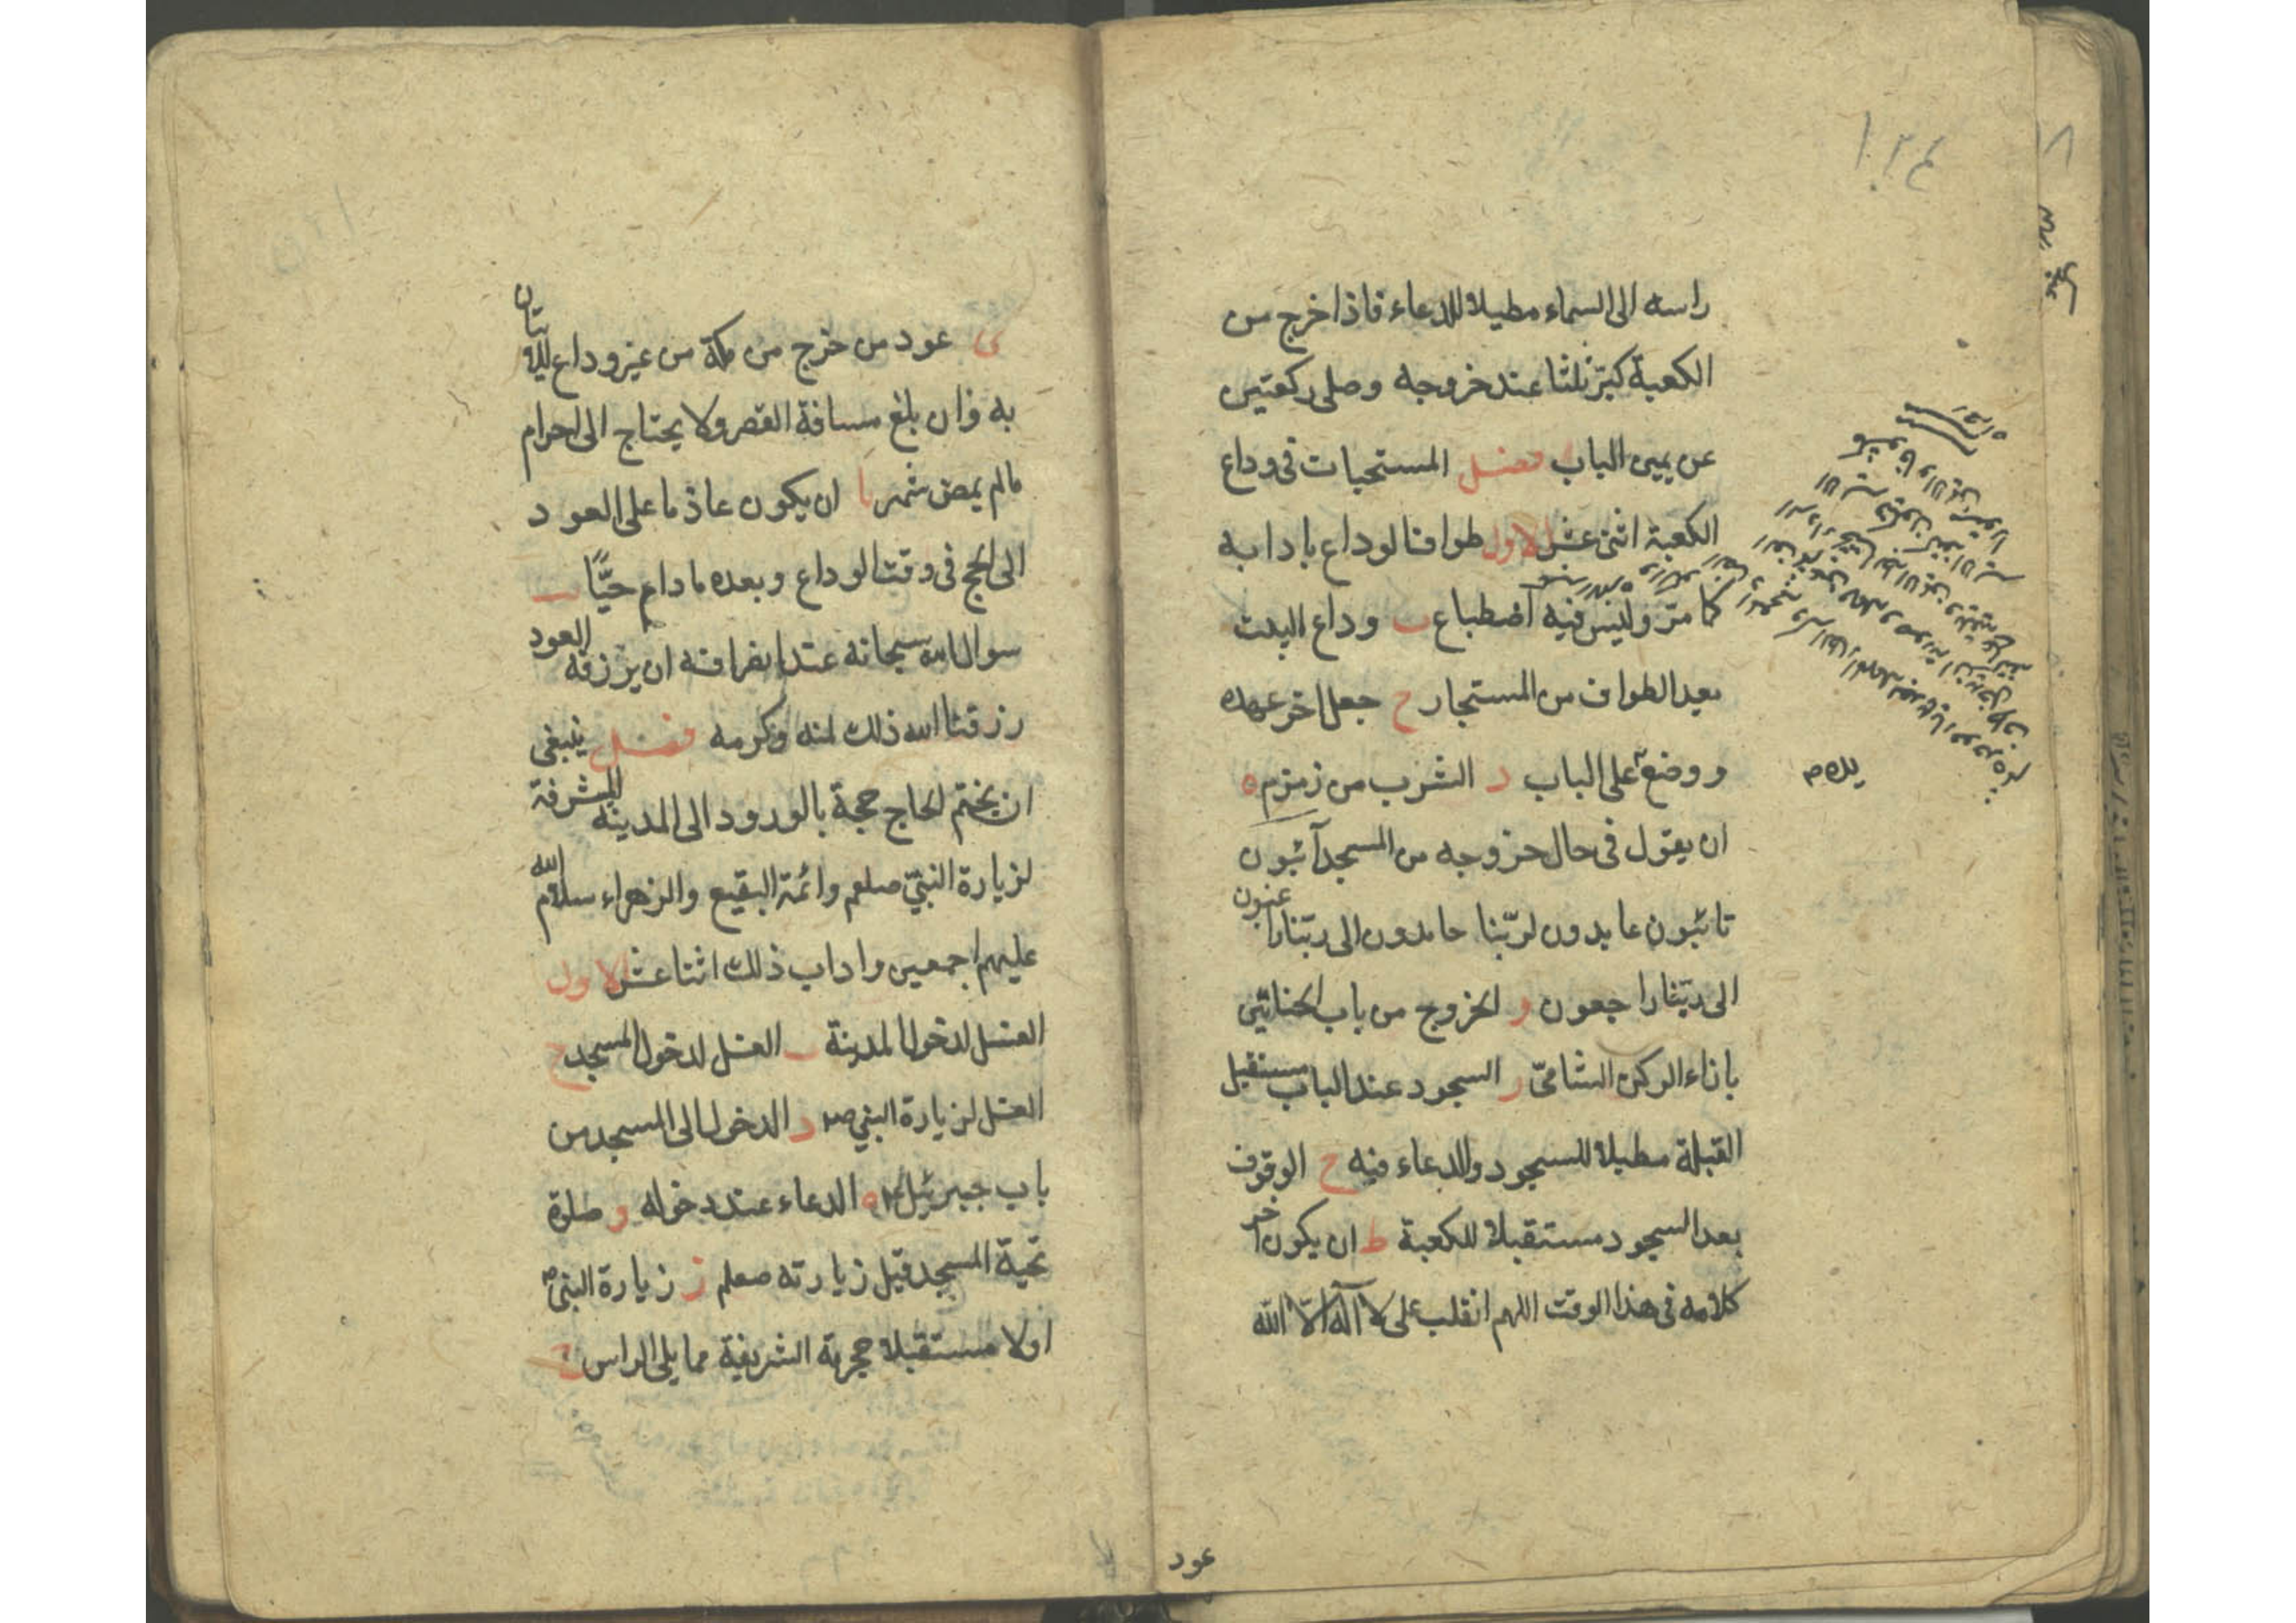 ١٣٤
راسه الى السماء مطيلا للدعاء فاذا خرج من
الكعبة كبّر ثلثا عند خروجه وصلى ركعتين
عن يمين الباب فصل المستحبات فى وداع
الكعبة اثنى عشر الاول طواف الوداع بادابه
كما مرّ وليس فيه اضطباع ب وداع البيت
بعد الطواف من المستجار ح جعل اخر عهده
ووضع على الباب د الشرب من زمزم ه
يده ص
ان يقول فى حال خروجه من المسجد آئبون
تائبون عابدون لربّنا حامدون الى ربّنا راغبون
الى ربّنا راجعون و الخروج من باب الحناطين
بازاء الركن الشامىّ ز السجود عند الباب مستقبل
القبلة مطيلا للسجود والدعاء فيه ح الوقوف
بعد السجود مستقبلا للكعبة ط ان يكون اخر
كلامه فى هذا الوقت اللهم انقلب على لا آله الّا الله
عود
ى عود من خرج من مكة من غير وداع للاتيان
به وان بلغ مسافة القصر ولا يحتاج الى احرام
مالم يمض شهر يا ان يكون عازما على العود
الى الحج فى وقت الوداع وبعده مادام حيًّا يب
سوال الله سبحانه عند انصرافه ان يرزقه العود
رزقنا الله ذلك بمنه وكرمه فصل ينبغى
ان يختم الحاج حجة بالورود الى المدينه المشرفة
لزيارة النبىّ صلعم وائمة البقيع والزهراء سلام الله
عليهم اجمعين واداب ذلك اثنا عشر الاول
الغسل لدخول المدينة ب الغسل لدخول المسجد ح
الغسل لزيارة النبي ص د الدخول الى المسجد من
باب جبرئيل ع ه الدعاء عند دخوله و صلوة
تحية المسجد قبل زيارته صعلم ز زيارة النبى ص
اولا مستقبلا حجرته الشريفة مما يلى الراس ح